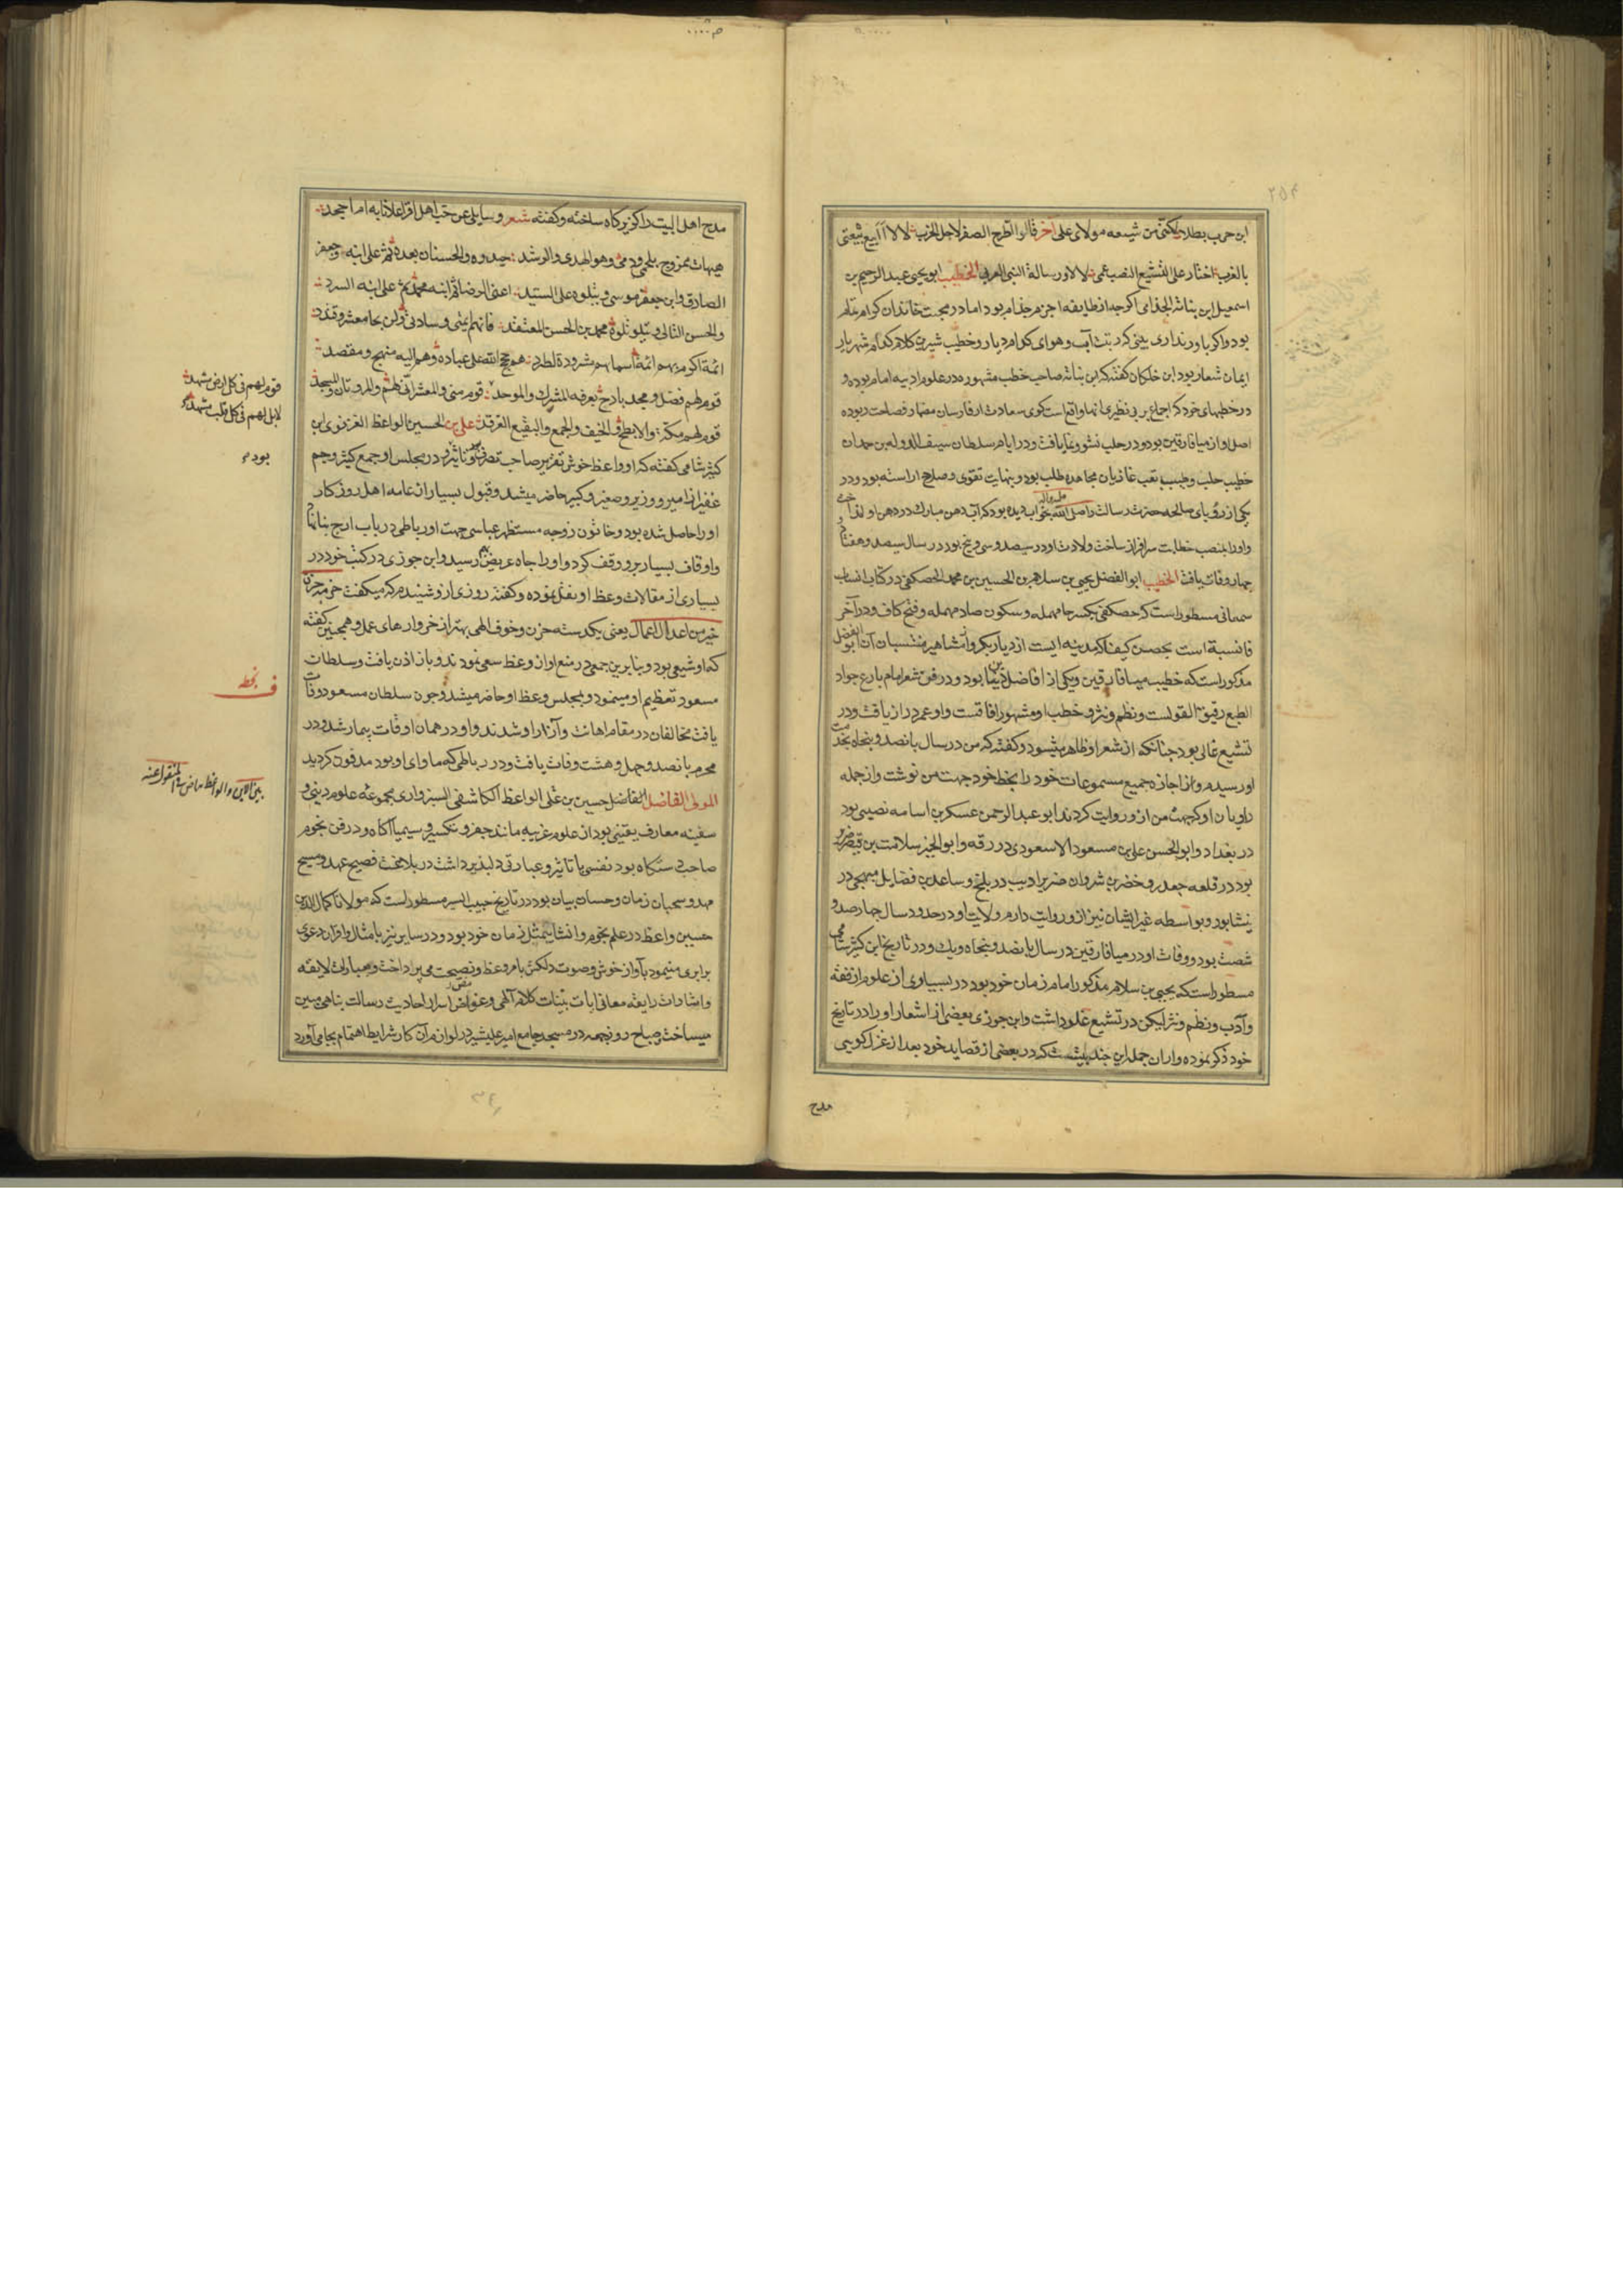 ۲۵۴
ابن حرب بطلا لکننی من شیعه مولای علی آخر قالوا اطرح الصفر لاجل الخزب لا لا اابیع شیعتی
بالغرب اختار علی التشیع النصب عمی لا لا ورسالة النبی العربی الخطیب ابو یحیی عبد الرحیم بن
اسمعیل ابن بناته الجذامی اکرچه از طایفه اجزم جذام بود اما در محبت خاندان کرام علم
بود و اکر باور نداری ببین کز تربت آب و هوای کدام دیار و خطیب شیرین کلام کدام شهریار
ایمان شعار بود ابن خلکان کفته که ابن بناته صاحب خطب مشهوره در علوم ادبیه امام بوده و
در خطبهای خود که اجماع بر بی نظیری انها واقع است کوی سعادت از فارسان مضمار فصاحت ربوده
اصل او از میافارقین بود و در حلب نشو و نما یافت و در ایام سلطان سیف الدوله بن حمدان
خطیب حلب و طبیب تعب غازیان مجاهده طلب بود و بنهایت تقوی و صلاح اراسته بود و در
یکی از رؤیای صالحه حضرت رسالت را صلی الله علیه واله بخواب دیده بود که آب دهن مبارک در دهن او انداخت
و اورا بمنصب خطابت سرافراز ساخت ولادت او در سیصد و سی و پنج بود در سال سیصد و هفتاد
چهار وفات یافت الخطیب ابو الفضل یحیی بن سلامه بن الحسین بن محمد الحصکفی در کتاب انساب
سمعانی مسطور است که حصکفی بکسر حا مهمله و سکون صاد مهمله و فتح کاف و در آخر
فا نسبة است بحصن کیفا که مدینه ایست از دیار بکر و از مشاهیر منتسبان آن ابو الفضل
مذکور است که خطیب میافارقین و یکی از افاضل دنیا بود و در فن شعر امام بارع جواد
الطبع رقیق القولست و نظم و نثر و خطب او مشهور افاقست و او عمر دراز یافت و در
تشیع غالی بود چنانکه از شعر او ظاهر میشود و کفته که من در سال پانصد و پنجاه بخدمت
او رسیدم و از اجازه جمیع مسموعات خود را بخط خود جهت من نوشت و از جمله
راویان او که جهت من از و روایت کردند ابو عبد الرحمن عسکر بن اسامه نصیبی بود
در بغداد و ابو الحسن علی بن مسعود الاسعودی در رقه و ابو الخیر سلامت بن قیصر ضریر
بود در قلعه جعبر و خضر بن شروان ضریر ادیب در بلخ و ساعد بن فضایل میهجی در
نیشابور و بواسطه غیر ایشان نیز از و روایت دارم ولادت او در حدود سال چهارصد و
شصت بود و وفات او در میافارقین در سال پانصد و پنجاه و یک و در تاریخ ابن کثیر شامی
مسطور است که یحیی بن سلام مذکور امام زمان خود بود در بسیاری از علوم از فقه
و آدب و نظم و نثر لیکن در تشیع غلو داشت و ابن جوزی بعضی از اشعار او را در تاریخ
خود ذکر نموده و از ان جمله این چند بیتست که در بعضی از قصاید خود بعد از غزل کویی
مدح
مدح اهل البیت را کریزکاه ساخته و کفته شعر وسایلی عن حب اهل اقر اعلانا به ام اجحد
هیهات ممزوج بلحمی و دمی وهو الهدی والرشد حیدره والحسنان بعده ثم علی ابنه وجعفر
الصادق وابن جعفر موسی ویتلوه علی السید اعنی الرضا ثم ابنه محمد ثم علی ابنه السرد
والحسن التالی ویتلو تلوه محمد بن الحسن المعتقد فانهم ایمتی وسادتی ولن یحا معشر وفندد
ائمة اکرم بهم ائمة اسماؤهم مشرودة لطرد هم حجج الله علی عباده وهم الیه منهج ومقصد
قوم لهم فضل ومجد باذخ یعرفه المشرک والموحد قوم منی والمشعران لهم والمروتان والمسجد
قوم لهم مکة والابطح والخیف والجمع والبقیع الغرقد علی بن الحسین الواعظ الغزنوی ابن
کثیر شامی کفته که او واعظ خوش تقریر صاحب تصرف و تاثیر و در مجلس او جمع کثیر و جم
غفیر از امیر و وزیر و صغیر و کبیر حاضر میشد و قبول بسیار از عامه اهل روزکار
او را حاصل شده بود و خاتون زوجه مستظهر عباسی جهت او رباطی در باب ازج بنا نهاد
و اوقاف بسیار بر و وقف کرد و او را جاه عریض بهم رسید و ابن جوزی در کتب خود در
بسیاری از مقالات وعظ او نقل نموده و کفته روزی از و شنیدم که میکفت حزمة حزن
خیر من اعدال اعمال یعنی یکدسته حزن و خوف الهی بهتر از خروارهای عمل و همچنین کفته
که او شیعی بود و بنابرین جمعی در منع او از وعظ سعی نمودند و باز اذن یافت و سلطان
مسعود تعظیم او مینمود و بمجلس وعظ او حاضر میشد و چون سلطان مسعود وفات
یافت مخالفان در مقام اهانت و آزار او شدند و او در همان اوقات بیمار شد و در
محرم پانصد و چهل و هشت وفات یافت و در رباطی که ماوای او بود مدفون کردید
المولی الفاضل الفاضل حسین بن علی الواعظ الکاشفی السبزواری مجموعه علوم دینی و
سفینه معارف یقینی بود از علوم غریبه مانند جفر و تکسیر و سیمیا آکاه و در فن نجوم
صاحب دستکاه بود نفسی با تاثیر و عبارتی دلپذیر داشت در بلاغت فصیح عهد و مسیح
مهد و سحبان زمان و حسان بیان بود در تاریخ حبیب السیر مسطور است که مولانا کمال الدین
حسین واعظ در علم نجوم و انشا بیمثل زمان خود بود و در سایر نیز با مثال و اقران دعوی
برابری مینمود بآواز خوش و صوت دلکش بامر وعظ و نصیحت می پرداخت و بعبارات لایقه
و اشارات رایقه معانی ایات بینات کلام آلهی و غوامض اسرار احادیث رسالت پناهی مبین
میساخت صباح روز جمعه در مسجد جامع امیر علیشیر در لوازم آن کار شرایط اهتمام بجا می آورد
قوم لهم فی کل ارض مشهد
لا بل لهم فی کل قلب مشهد
بود م